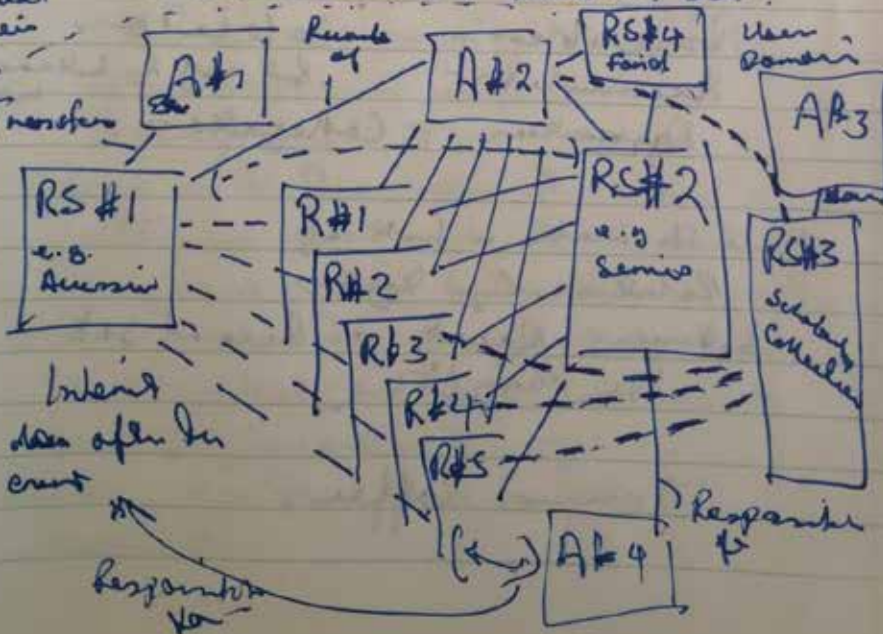 A#1
Records
of
A#2
RS#4
Fond
User
Domain
A#3
Transfers
RS#1
e.g.
Accession
R#1
R#2
R#3
R#4
R#5
RS#2
e.g
Series
RS#3
Scholarly
Collection
after the
event
Responsible
for
A#4
Responsible
for